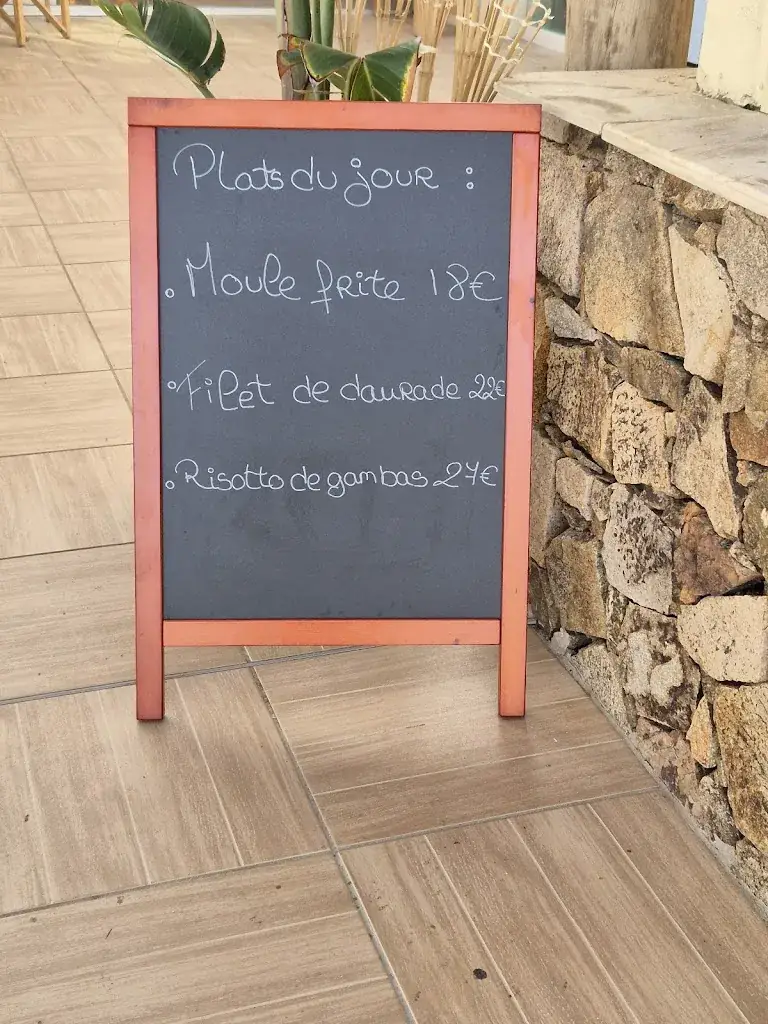 Plats du jour :
. Moule frite 18€
. Filet de daurade 22€
. Risotto de gambas 27€